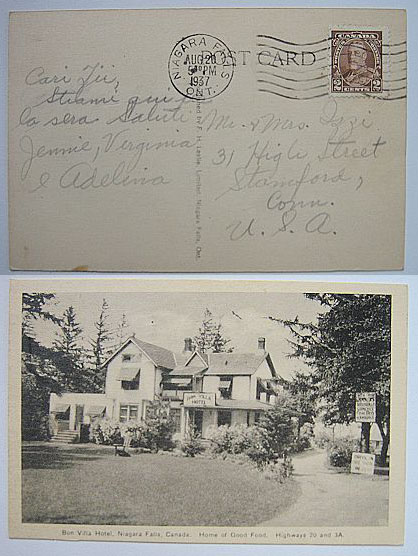 POST CARD
NIAGARA FALLS
AUG 20
PM
1937
ONT.
CANADA
2 CENTS 2
Cari Zii,
Stiami qui p
la sera Saluti
Jennie, Virginia
e Adelina
Mr. & Mrs. Izzi
31 High Street
Stamford,
Conn.
U. S. A.
by F. H. Leslie, Limited, Niagara Falls, Ont.
BON VILLA
HOTEL
Bon Villa Hotel, Niagara Falls, Canada. Home of Good Food. Highways 20 and 3A.